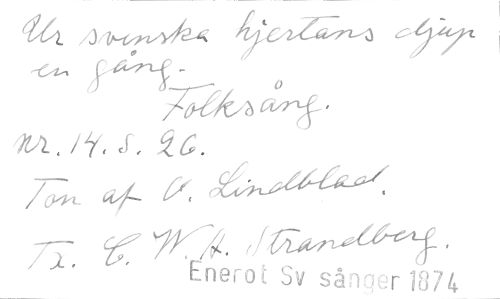 Ur svenska hjertans djup
en gång.
Folksång.
nr. 14. s. 26.
Ton af O. Lindblad.
Tx. C. W. A. Strandberg.
Enerot Sv sånger 1874